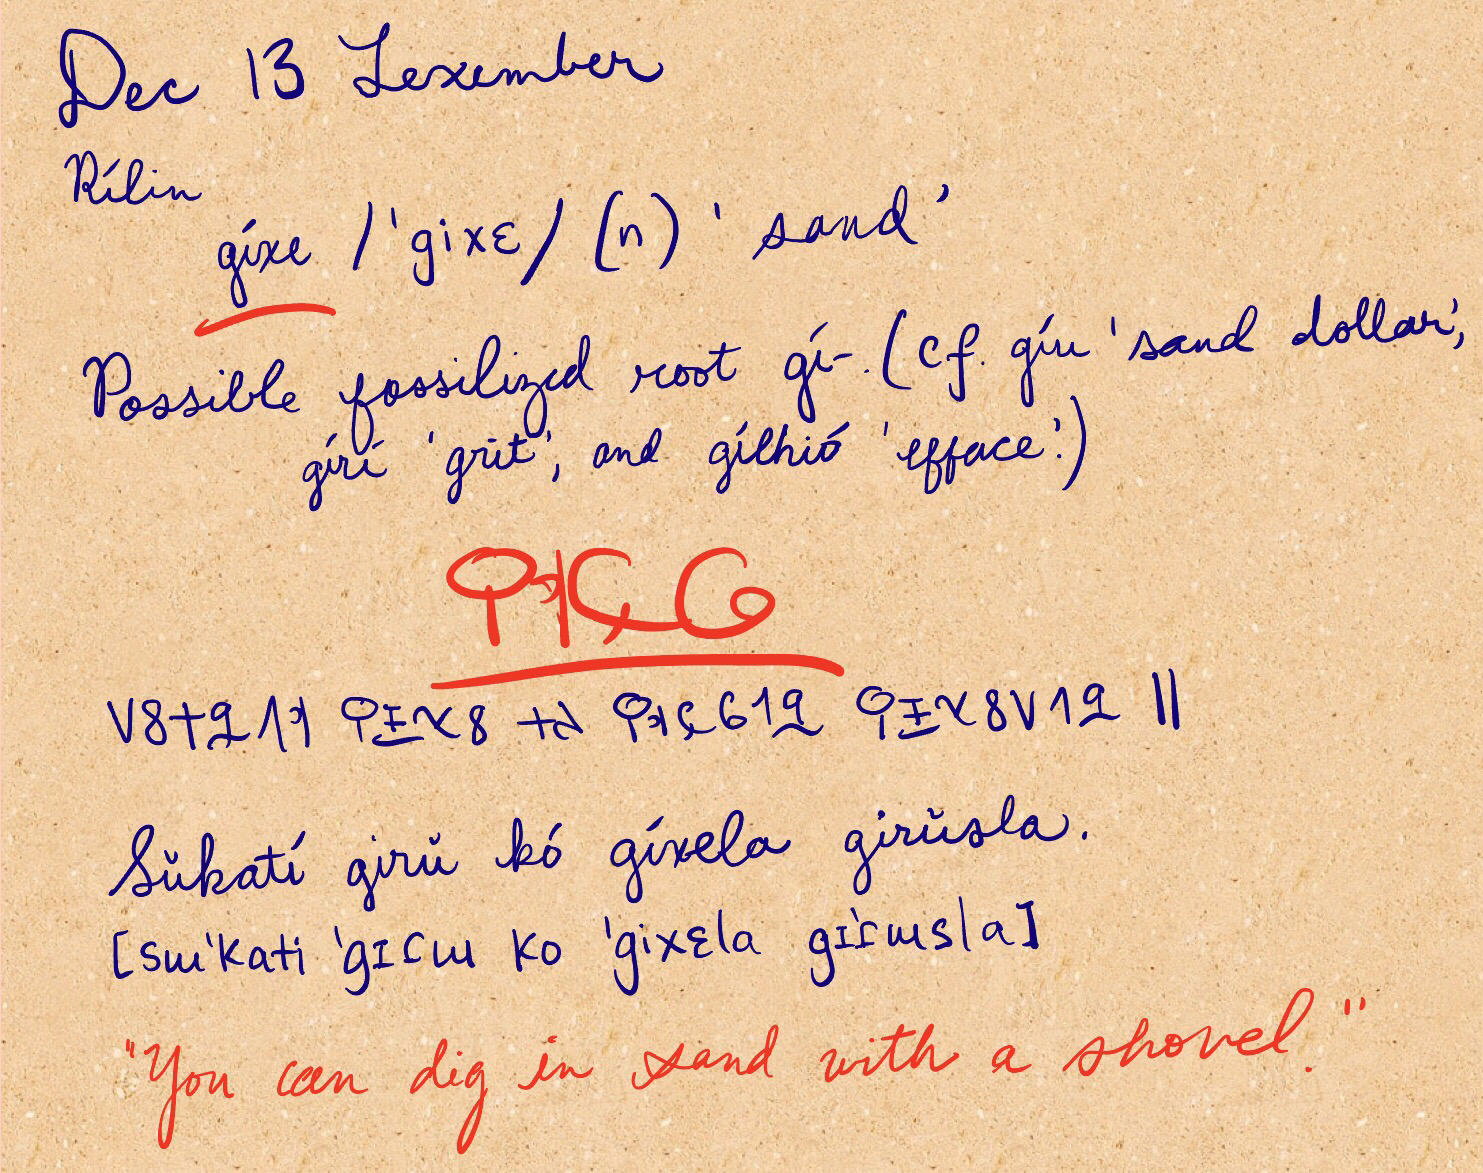 Dec 13 Lexember
Rílin
gíxe /ˈgixɛ/ (n) 'sand'
Possible fossilized root gí-. (cf. gíu 'sand dollar',
gírí 'grit', and gílhió 'efface'.)
Sŭkatí girŭ kó gíxela girŭsla.
[sɯˈkati ˈgɪɾɯ ko ˈgixɛla gɪˈɾɯsla]
"You can dig in sand with a shovel."